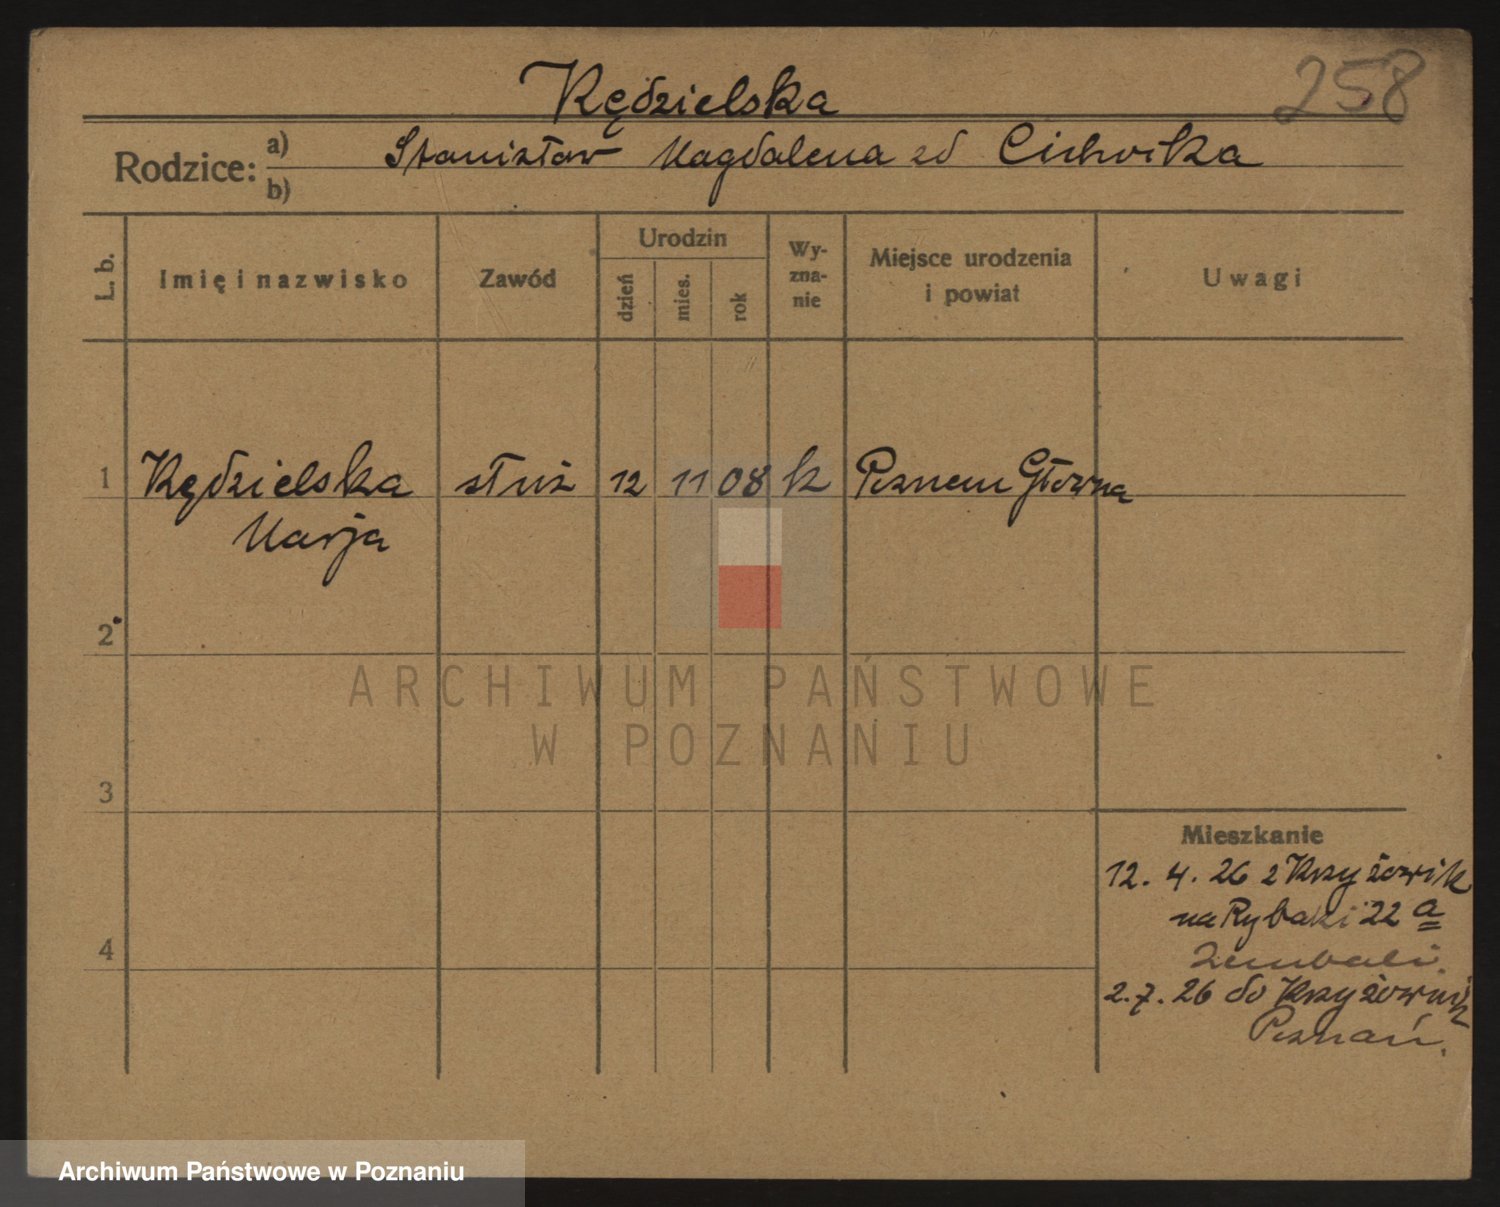 258
Kędzielska
Rodzice: a) Stanisław Magdalena zd Cichocka
b)
L. b. Imię i nazwisko Zawód Urodzin dzień mies. rok Wyznanie Miejsce urodzenia i powiat Uwagi
1 Kędzielska służ 12 11 08 k Poznem Główna
Marja
2
ARCHIWUM PAŃSTWOWE
W POZNANIU
3
Mieszkanie
12. 4. 26 z Krzyżownik
na Rybaki 22 a
4
2. 7. 26 do Krzyżownik
Poznań.
Archiwum Państwowe w Poznaniu